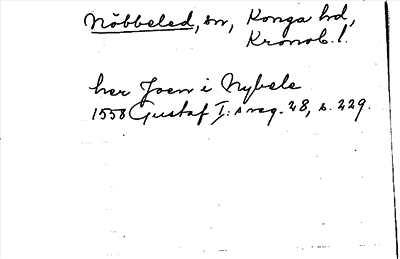 Nöbbeled, sn, Konga hd,
Kronob. l.
her Joen i Nybele
1558 Gustaf I:s reg. 28, s. 229.